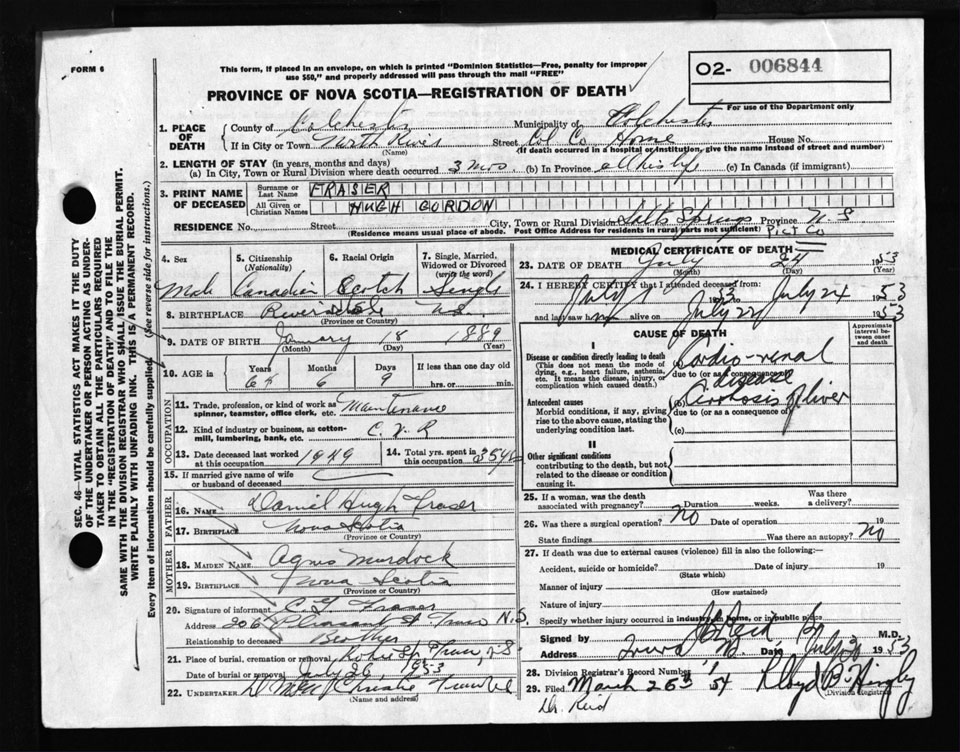 FORM 6
This form, if placed in an envelope, on which is printed "Dominion Statistics—Free, penalty for improper
use $50," and properly addressed will pass through the mail "FREE"
O2- 006844
PROVINCE OF NOVA SCOTIA—REGISTRATION OF DEATH
For use of the Department only
1. PLACE OF DEATH County of Colchester Municipality of Colchester
If in City or Town North River Street Col Co Home House No.
(Name) (If death occurred in a hospital or institution, give the name instead of street and number)
2. LENGTH OF STAY (in years, months and days)
(a) In City, Town or Rural Division where death occurred 3 mos (b) In Province (c) In Canada (if immigrant)
3. PRINT NAME OF DECEASED Surname or Last Name FRASER
All Given or Christian Names HUGH GORDON
RESIDENCE No. Street City, Town or Rural Division Salts Springs Province N-S
(Residence means usual place of abode. Post Office Address for residents in rural parts not sufficient) Pict Co
4. Sex 5. Citizenship (Nationality) 6. Racial Origin 7. Single, Married, Widowed or Divorced (write the word)
Male Canadian Scotch Single
8. BIRTHPLACE Riversdale N.S.
(Province or Country)
9. DATE OF BIRTH January 18 1889
(Month) (Day) (Year)
10. AGE in Years Months Days If less than one day old
64 6 9 hrs. or min.
OCCUPATION
11. Trade, profession, or kind of work as spinner, teamster, office clerk, etc. Maintenance
12. Kind of industry or business, as cotton-mill, lumbering, bank, etc.
13. Date deceased last worked at this occupation 1949 14. Total yrs. spent in this occupation
15. If married give name of wife or husband of deceased
FATHER
16. Name Daniel Hugh Fraser
17. Birthplace Nova Scotia
(Province or Country)
MOTHER
18. MAIDEN NAME Agnes Murdock
19. BIRTHPLACE Nova Scotia
(Province or Country)
20. Signature of informant Fraser
Address 206 Pleasant St Truro N.S.
Relationship to deceased Brother
21. Place of burial, cremation or removal Truro, N-S-
Date of burial or removal July 26, 1953
22. UNDERTAKER
(Name and address)
MEDICAL CERTIFICATE OF DEATH
23. DATE OF DEATH July 24 1953
(Month) (Day) (Year)
24. I HEREBY CERTIFY that I attended deceased from:
July 1 1953 to July 24 1953
last saw him alive on July 22 1953
CAUSE OF DEATH
Approximate interval between onset and death
I
Disease or condition directly leading to death
(This does not mean the mode of dying, e.g., heart failure, asthenia, etc. It means the disease, injury, or complication which caused death.)
Cardio-renal disease
due to (or as a consequence of)
Antecedent causes
Morbid conditions, if any, giving rise to the above cause, stating the underlying condition last.
(b) Cirrhosis of liver
due to (or as a consequence of)
(c)
II
Other significant conditions
contributing to the death, but not related to the disease or condition causing it.
25. If a woman, was the death associated with pregnancy? Duration weeks. Was there a delivery?
26. Was there a surgical operation? no Date of operation 19
State findings Was there an autopsy? no
27. If death was due to external causes (violence) fill in also the following:—
Accident, suicide or homicide? Date of injury 19
(State which)
Manner of injury
(How sustained)
Nature of injury
Specify whether injury occurred in industry, in home, or in public place
Signed by M.D.
Address Truro Date July 1953
28. Division Registrar's Record Number
29. Filed March 26th 54 Lloyd B. Hingley
Division Registrar
Dr. Reid
SEC. 46—VITAL STATISTICS ACT MAKES IT THE DUTY
OF THE UNDERTAKER OR PERSON ACTING AS UNDER-
TAKER TO OBTAIN ALL THE PARTICULARS REQUIRED
IN THE "REGISTRATION OF DEATH" AND TO FILE THE
SAME WITH THE DIVISION REGISTRAR WHO SHALL ISSUE THE BURIAL PERMIT.
WRITE PLAINLY WITH UNFADING INK. THIS IS A PERMANENT RECORD.
Every item of information should be carefully supplied. (See reverse side for instructions.)